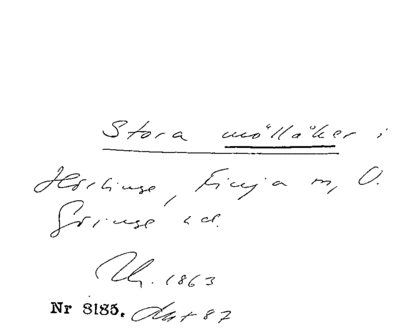 Stora mölläker i
Hörlinge, Finja m, V.
Göinge hd.
Uh. 1863
Nr 8185. Akt 87